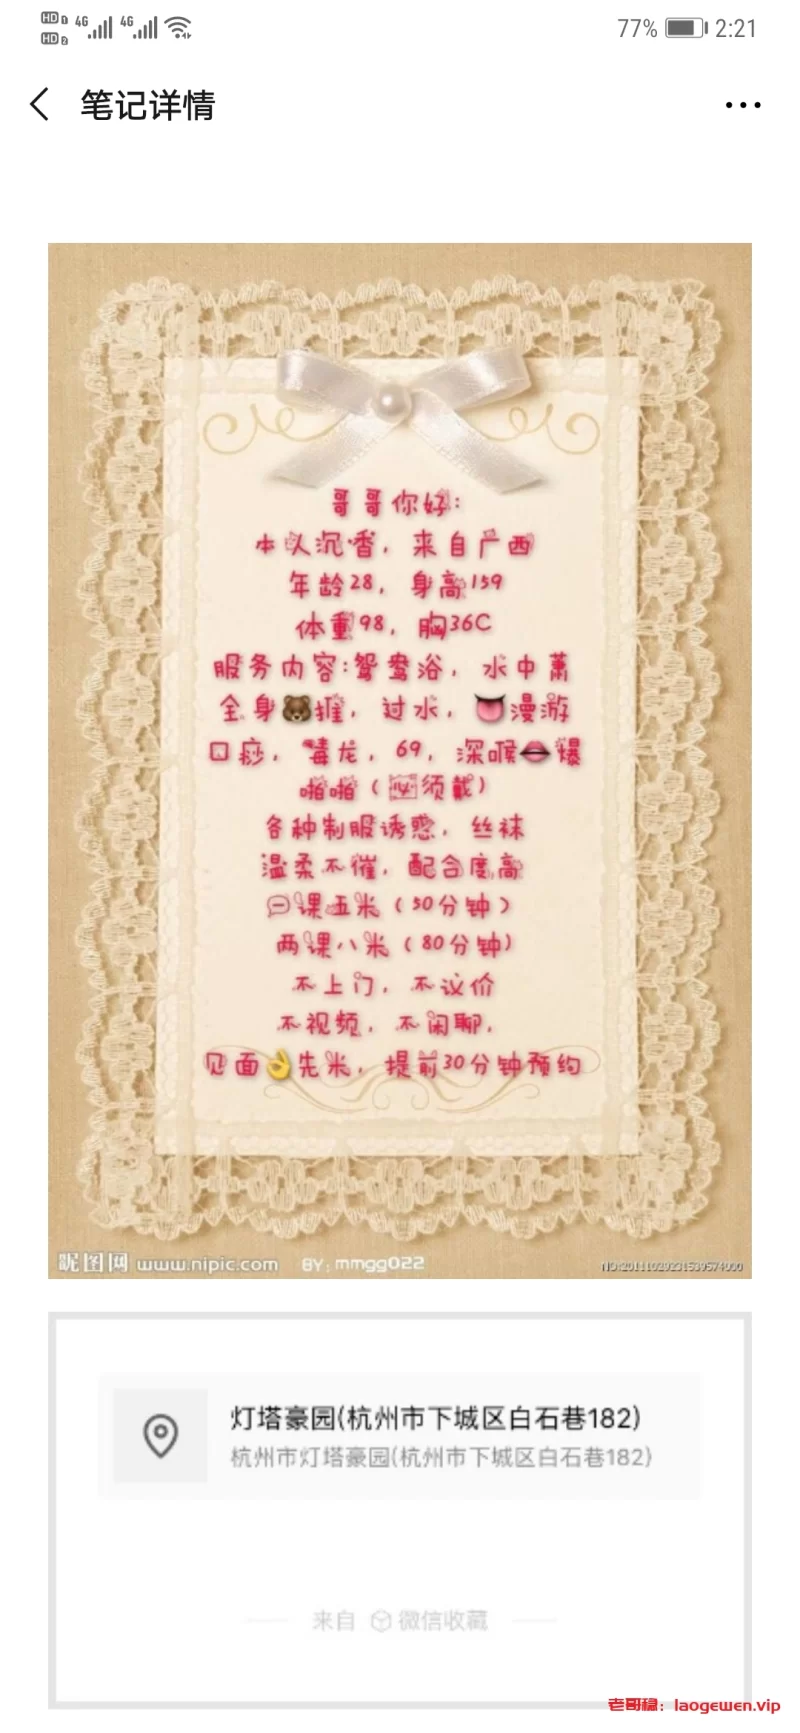 HD 1 4G 4G
HD 2
77% 2:21
笔记详情
哥哥你好:
本人沉香,来自广西
年龄28,身高159
体重98,胸36C
服务内容:鸳鸯浴,水中萧
全身🐻推,过水,👅漫游
口痧,毒龙,69,深喉👄爆
啪啪(必须戴)
各种制服诱惑,丝袜
温柔不催,配合度高
一课五米(50分钟)
两课八米(80分钟)
不上门,不议价
不视频,不闲聊,
见面👌先米,提前30分钟预约
昵图网 www.nipic.com BY:mmgg022
灯塔豪园(杭州市下城区白石巷182)
杭州市灯塔豪园(杭州市下城区白石巷182)
来自 微信收藏
老哥稳:laogewen.vip